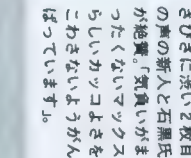 渋い2枚目
の声の新人と石黒氏
が絶賛。「気負いがま
ったくないマックス
らしいカッコよさを
こわさないようがん
ばっています」。